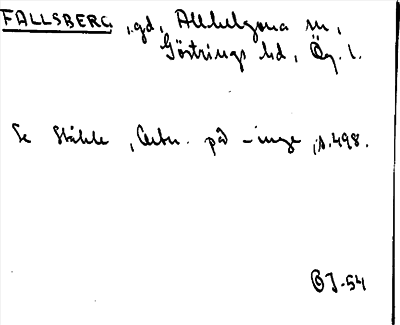 FALLSBERG, gd, Allhelgona sn,
Göstrings hd, Ög. l.
Se Ståhle, Ortn. på -inge, s. 498.
OJ-54